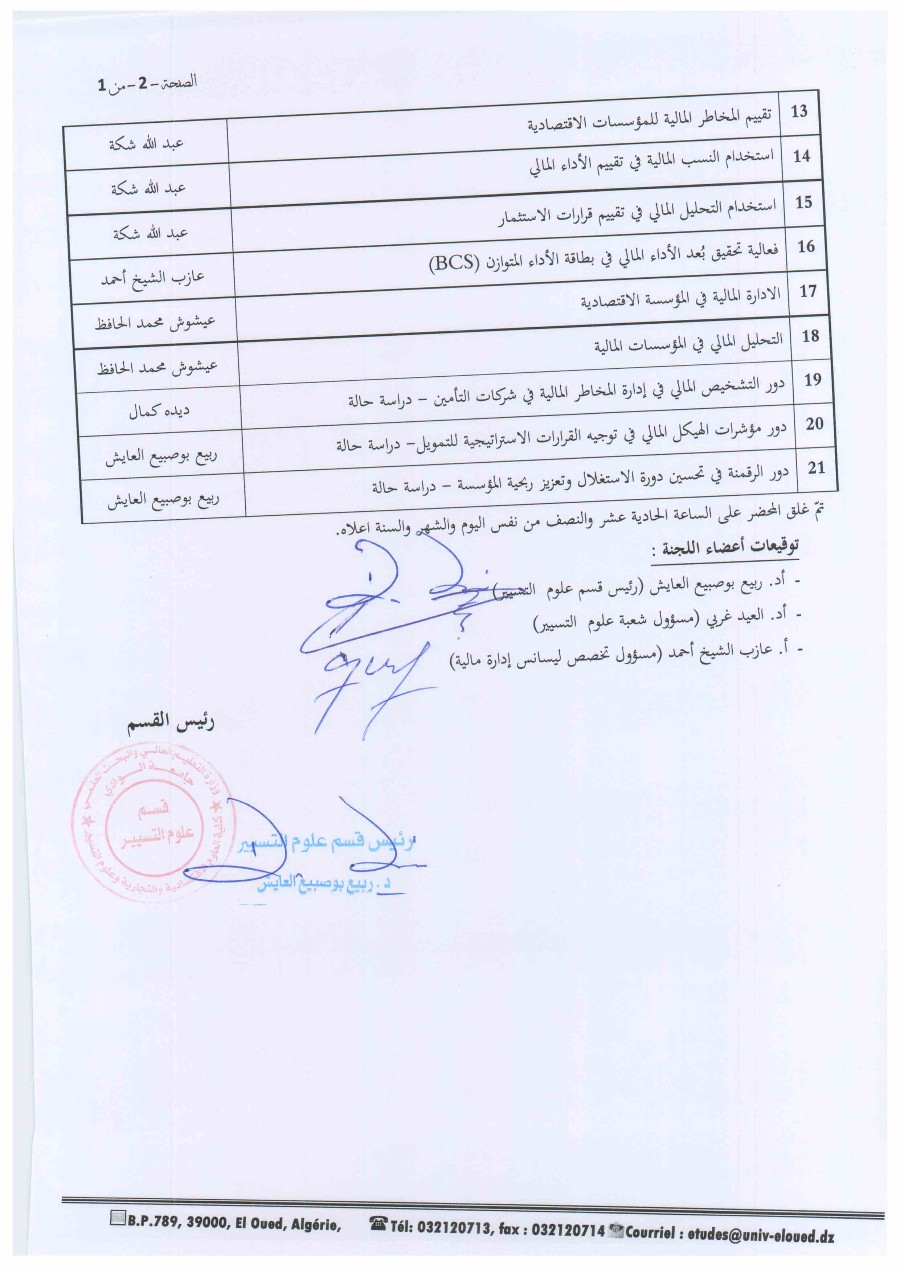 الصفحة -2- من 1
13 تقييم المخاطر المالية للمؤسسات الاقتصادية عبد الله شكة
14 استخدام النسب المالية في تقييم الأداء المالي عبد الله شكة
15 استخدام التحليل المالي في تقييم قرارات الاستثمار عبد الله شكة
16 فعالية تحقيق بُعد الأداء المالي في بطاقة الأداء المتوازن (BCS) عازب الشيخ أحمد
17 الادارة المالية في المؤسسة الاقتصادية عيشوش محمد الحافظ
18 التحليل المالي في المؤسسات المالية عيشوش محمد الحافظ
19 دور التشخيص المالي في إدارة المخاطر المالية في شركات التأمين – دراسة حالة ديده كمال
20 دور مؤشرات الهيكل المالي في توجيه القرارات الاستراتيجية للتمويل– دراسة حالة ربيع بوصبيع العايش
21 دور الرقمنة في تحسين دورة الاستغلال وتعزيز ربحية المؤسسة – دراسة حالة ربيع بوصبيع العايش
تمّ غلق المحضر على الساعة الحادية عشر والنصف من نفس اليوم والشهر والسنة اعلاه.
توقيعات أعضاء اللجنة :
- أد. ربيع بوصبيع العايش (رئيس قسم علوم التسيير)
- أد. العيد غربي (مسؤول شعبة علوم التسيير)
- أ. عازب الشيخ أحمد (مسؤول تخصص ليسانس إدارة مالية)
رئيس القسم
وزارة التعليم العالي والبحث العلمي
جامعة الوادي
قسم
علوم التسيير
رئيس قسم علوم التسيير
د. ربيع بوصبيع العايش
B.P.789, 39000, El Oued, Algérie, Tél: 032120713, fax : 032120714 Courriel : etudes@univ-eloued.dz